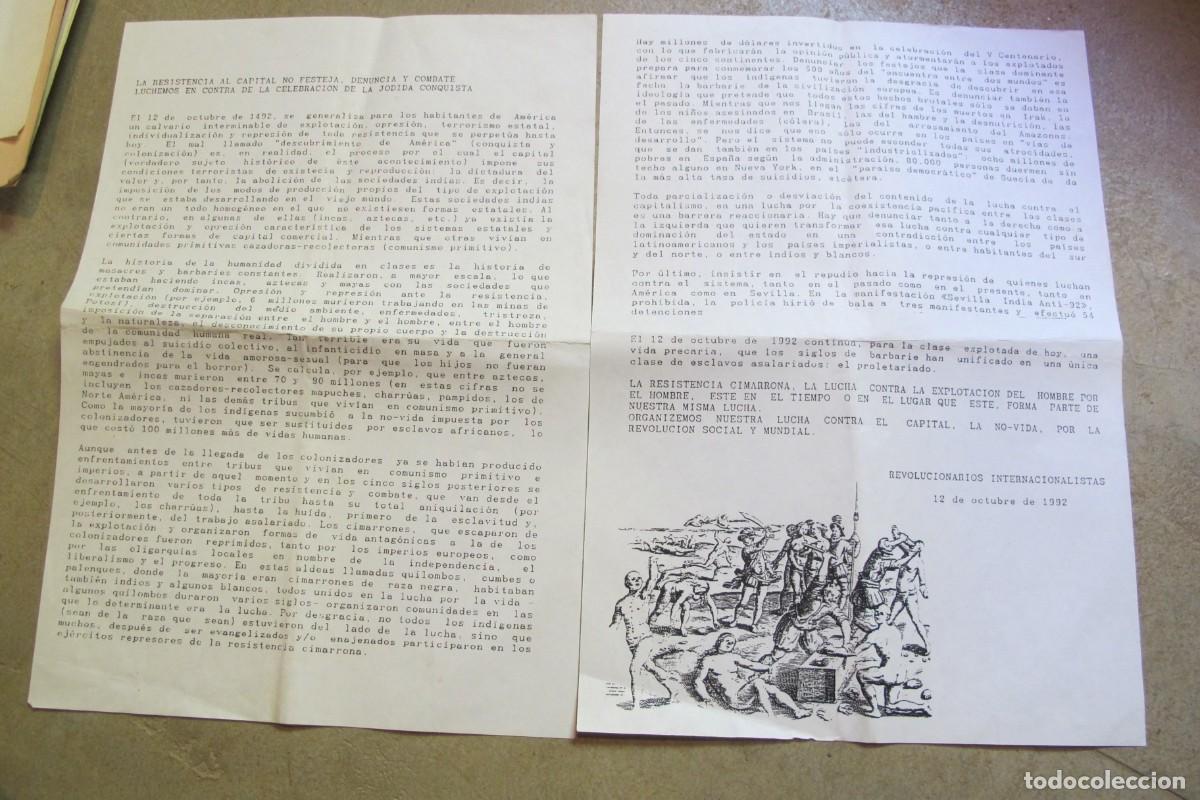 LA RESISTENCIA AL CAPITAL NO FESTEJA, DENUNCIA Y COMBATE
LUCHEMOS EN CONTRA DE LA CELEBRACION DE LA JODIDA CONQUISTA
El 12 de octubre de 1492, se generaliza para los habitantes de América
un calvario interminable de explotación, opresión, terrorismo estatal,
individualización y represión de todo resistencia que se perpetúa hasta
hoy. El mal llamado "descubrimiento de América" (conquista y
colonización) es, en realidad, el proceso por el cual el capital
(verdadero sujeto histórico de este acontecimiento) impone sus
condiciones terroristas de existecia y reproducción: la dictadura del
valor y, por tanto, la abolición de las sociedades indias. Es decir, la
imposición de los modos de producción propios del tipo de explotación
que se estaba desarrollando en el viejo mundo. Estas sociedades indias
no eran un todo homogéneo en el que no existiesen formas estatales. Al
contrario, en algunas de ellas (incas, aztecas, etc.) ya existía la
explotación y opresión característica de los sistemas estatales y
ciertas formas de capital comercial. Mientras que otras vivían en
comunidades primitivas cazadoras-recolectoras (comunismo primitivo).
La historia de la humanidad dividida en clases es la historia de
masacres y barbaries constantes. Realizaron, a mayor escala, lo que
estaban haciendo incas, aztecas y mayas con las sociedades que
pretendían dominar. Opresión y represión ante la resistencia,
explotación (por ejemplo, 6 millones murieron trabajando en las minas de
Potosí), destrucción del medio ambiente, enfermedades, tristreza,
imposición de la separación entre el hombre y el hombre, entre el hombre
y la naturaleza, el desconocimiento de su propio cuerpo y la destrucción
de la comunidad humana real. Tan terrible era su vida que fueron
empujados al suicidio colectivo, al infanticidio en masa y a la general
abstinencia de la vida amorosa-sexual (para que los hijos no fueran
engendrados para el horror). Se calcula, por ejemplo, que entre aztecas,
mayas e incas murieron entre 70 y 90 millones (en estas cifras no se
incluyen los cazadores-recolectores mapuches, charrúas, pampidos, los de
Norte América, ni las demás tribus que vivían en comunismo primitivo).
Como la mayoría de los indígenas sucumbió a la no-vida impuesta por los
colonizadores, tuvieron que ser sustituidos por esclavos africanos, lo
que costó 100 millones más de vidas humanas.
Aunque antes de la llegada de los colonizadores ya se habían producido
enfrentamientos entre tribus que vivían en comunismo primitivo e
imperios, a partir de aquel momento y en los cinco siglos posteriores se
desarrollaron varios tipos de resistencia y combate, que van desde el
enfrentamiento de toda la tribu hasta su total aniquilación (por
ejemplo, los charrúas), hasta la huída, primero de la esclavitud y,
posteriormente, del trabajo asalariado. Los cimarrones, que escaparon de
la explotación y organizaron formas de vida antagónicas a la de los
colonizadores fueron reprimidos, tanto por los imperios europeos, como
por las oligarquías locales en nombre de la independencia, el
liberalismo y el progreso. En estas aldeas llamadas quilombos, cumbes o
palenques, donde la mayoría eran cimarrones de raza negra, habitaban
también indios y algunos blancos, todos unidos en la lucha por la vida -
algunos quilombos duraron varios siglos- organizaron comunidades en las
que lo determinante era la lucha. Por desgracia, no todos los indígenas
(sean de la raza que sean) estuvieron del lado de la lucha, sino que
muchos, después de ser evangelizados y/o enajenados participaron en los
ejércitos represores de la resistencia cimarrona.
Hay millones de dólares invertidos en la celebración del V Centenario,
con lo que fabricarán la opinión pública y atormentarán a los explotados
de los cinco continentes. Denunciar los festejos que la clase dominante
prepara para conmemorar los 500 años del "encuentro entre dos mundos" es
afirmar que los indígenas tuvieron la desgracia de descubrir en esa
fecha la barbarie de la civilización europea. Es denunciar también la
ideología que pretende que todos estos hechos brutales sólo se daban en
el pasado. Mientras que nos llegan las cifras de los muertos en Irak, la
de los niños asesinados en Brasil, las del hambre y la desnutrición, las
de las enfermedades (cólera), las del arrasamiento del Amazonas.
Entonces, se nos dice que eso sólo ocurre en los países en "vías de
desarrollo". Pero el sistema no puede esconder todas sus atrocidades,
que se dan también en los países "industrializados", ocho millones de
pobres en España según la administración, 80.000 personas duermen sin
techo alguno en Nueva York, en el "paraíso democrático" de Suecia de da
la más alta tasa de suicidios, etcétera.
Toda parcialización o desviación del contenido de la lucha contra el
capitalismo, en una lucha por la coexistencia pacífica entre las clases
es una barrera reaccionaria. Hay que denunciar tanto a la derecha como a
la izquierda que quieren transformar esa lucha contra cualquier tipo de
dominación del estado en una contradicción entre los países
latinoamericanos y los países imperialistas, o entre habitantes del sur
y del norte, o entre indios y blancos.
Por último, insistir en el repudio hacia la represión de quienes luchan
contra el sistema, tanto en el pasado como en el presente, tanto en
América como en Sevilla. En la manifestación «Sevilla India Anti-92»,
prohibida, la policía hirió de bala a tres manifestantes y efectuó 54
detenciones
El 12 de octubre de 1992 continúa, para la clase explotada de hoy, una
vida precaria, que los siglos de barbarie han unificado en una única
clase de esclavos asalariados: el proletariado.
LA RESISTENCIA CIMARRONA, LA LUCHA CONTRA LA EXPLOTACION DEL HOMBRE POR
EL HOMBRE, ESTE EN EL TIEMPO O EN EL LUGAR QUE ESTE, FORMA PARTE DE
NUESTRA MISMA LUCHA.
ORGANIZEMOS NUESTRA LUCHA CONTRA EL CAPITAL, LA NO-VIDA, POR LA
REVOLUCION SOCIAL Y MUNDIAL.
REVOLUCIONARIOS INTERNACIONALISTAS
12 de octubre de 1992
todocoleccion